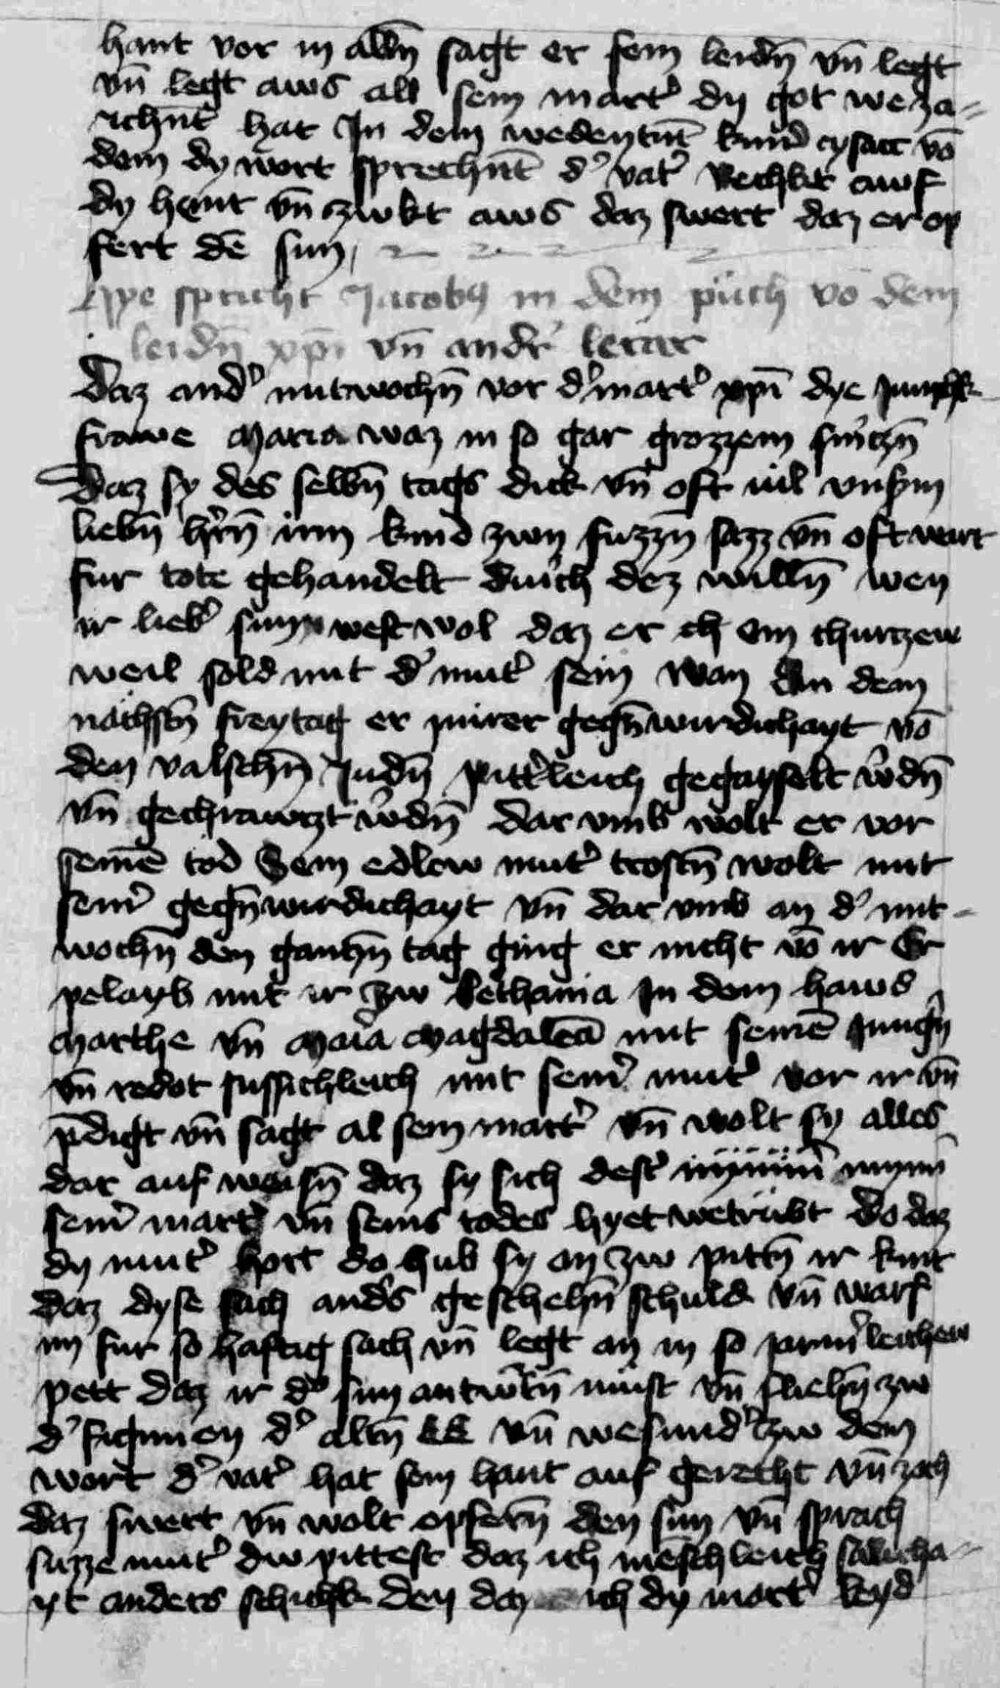 hant vor in alln̄ sagt er sein leidn̄ vn̄ legt
vn̄ legt aws all sein mart᷑ dy got weza-
ichnt̄ hat In dem wedeutnt̄ kind ysaac vō
dem dy wort sprechnt̄ d᷑ vat᷑ Rechkt auf
dy hent vn̄ zwkt aws daz swert daz er op
fert dē sun
Hye spricht Jacobus in dem püch vō dem
leidn̄ xp̄i vn̄ andr᷑ lerar
Daz and᷑ mitwochn̄ vor d᷑ mart᷑ xp̄i dye Junchk
frawe Maria waz in so gar grozzem smerczn̄
Daz sy des selbn̄ tags dick vn̄ oft uil vnsm
liebn̄ hr̄n̄ irm kind zwn fuzzn̄ sazz vn̄ oft wart
fur tote gehandelt durch dez willn̄ wen
ir lieb᷑ sun west wol daz er ch ein churtzew
weil sold mit d᷑ mut᷑ sein Wan An dem
nachstn̄ freytag er in irer gegn̄wurdichayt vō
den valschn̄ Judn̄ pitt᷑leich gegayselt w᷑dn̄
vn̄ gechrawtzt w᷑dn̄ dar vmb wolt er vor
seinē tod Sein edlew mut᷑ trostn̄ wolt mit
sein᷑ gegn̄wurdichayt vn̄ dar vmb an d᷑ mit-
wochn̄ den gantzn̄ tag ging er nicht vō ir Er
pelayb mit ir zw Bethania In dem haws
Marthe vn̄ Maria Magdalenā mit seinē Jungn̄
vn̄ redot sussichleich mit sein᷑ mut᷑ vor ir vn̄
p̄digt vn̄ sagt al sein mart᷑ vn̄ wolt sy alles
dar auf weisn̄ daz sy sich dest᷑ mynn᷑
sein᷑ mart᷑ vn̄ seins todes hyet wetrubt Do daz
dy mut᷑ hort do hub sy an zw pittn̄ ir kint
daz dyse sach anders geschehn̄ schuld vn̄ warf
im fur so haftig sach vn̄ legt an in so innr᷑leichew
pett daz ir d᷑ sun antw᷑tn̄ must vn̄ fliehn̄ zw
d᷑ figuren d᷑ altn̄ EE vn̄ wesund᷑ zw dem
wort d᷑ vat᷑ hat sein hant auf gerecht vn̄ zoch
daz swert vn̄ wolt opfern̄ den sun vn̄ sprach
suzze mut᷑ dw pittest daz ich menschleich salicha-
yt anders schichk den daz ich dy mart᷑ leyd